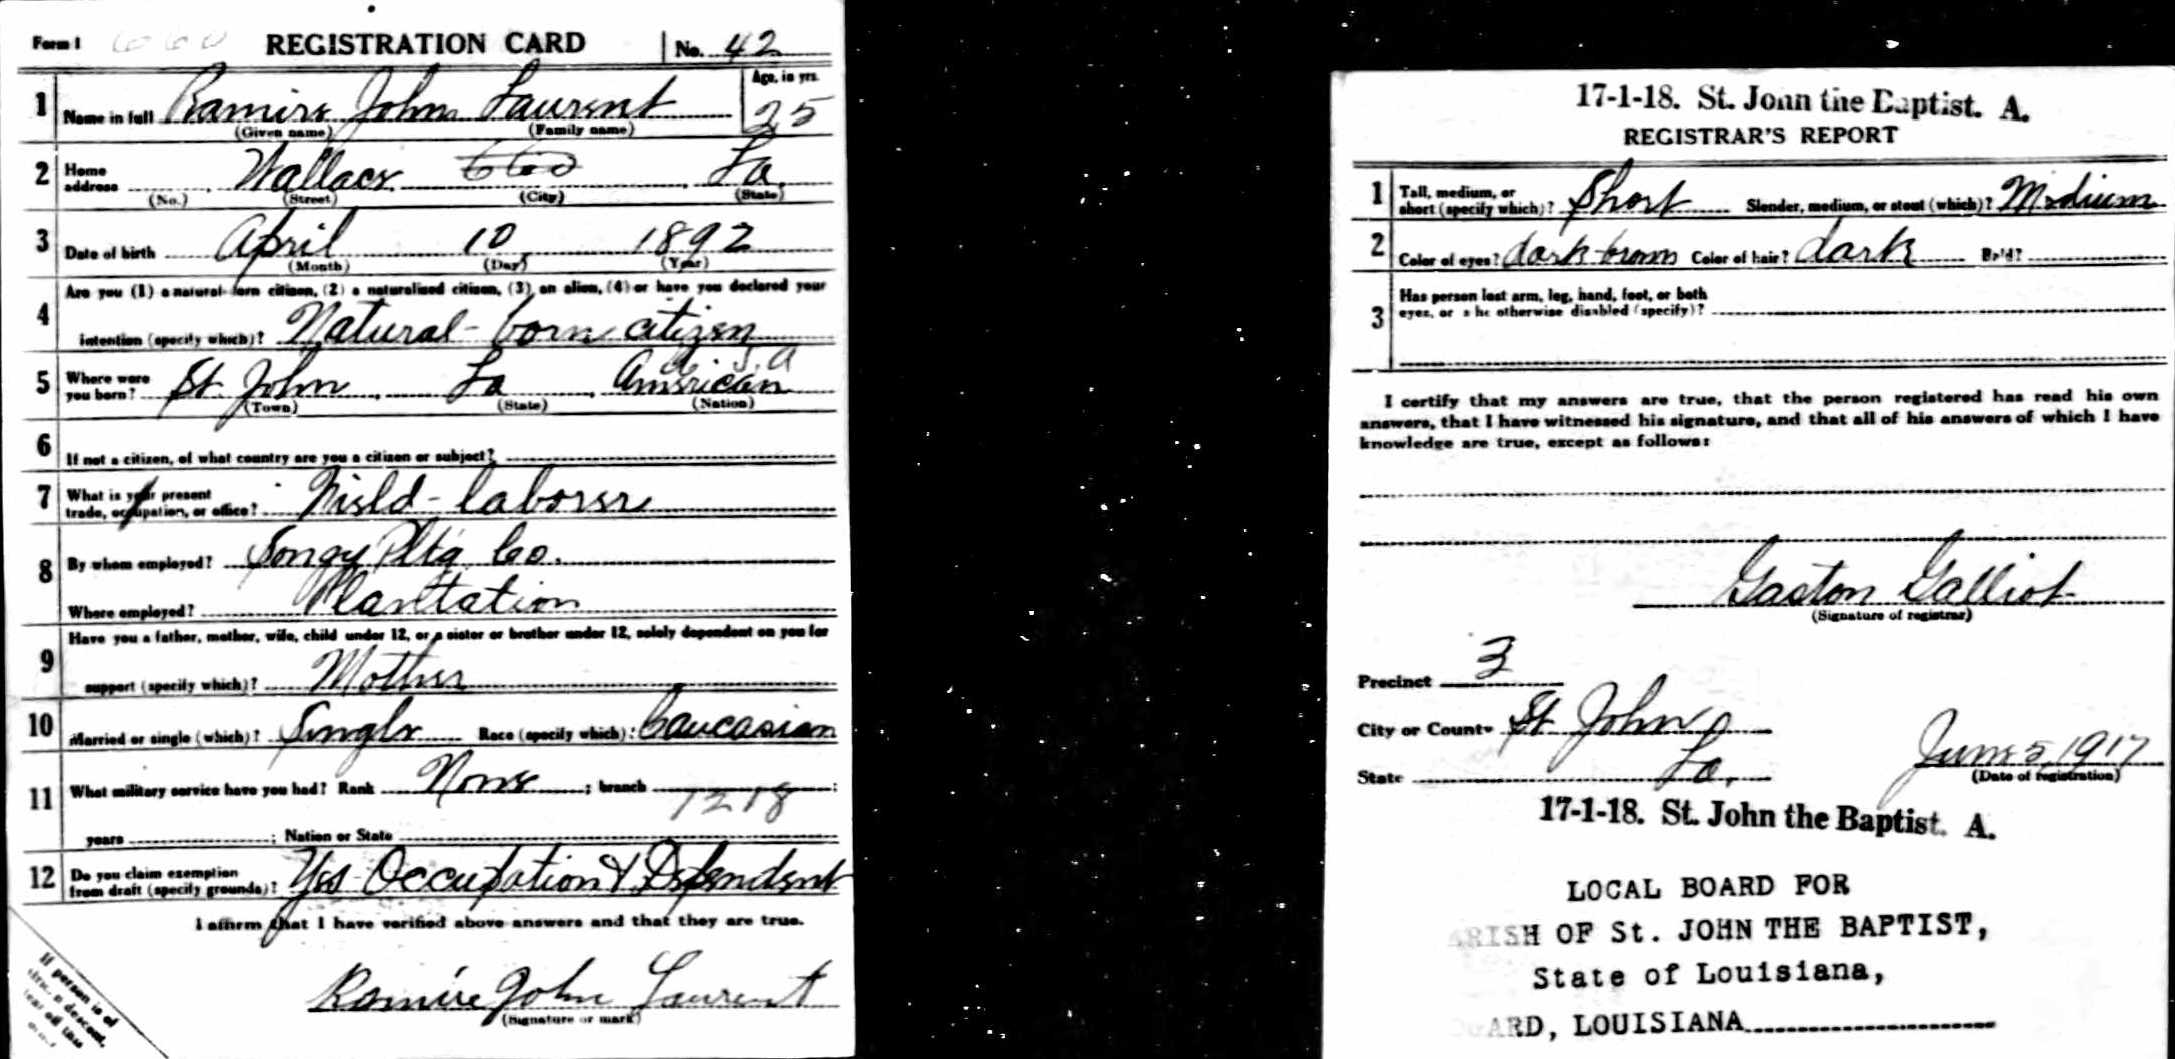 Form 1 660 REGISTRATION CARD No. 42
1 Name in full Ramire John Laurent Age, in yrs. 25
(Given name) (Family name)
2 Home address Wallace La.
(No.) (Street) (City) (State)
3 Date of birth April 10 1892
(Month) (Day) (Year)
4 Are you (1) a natural-born citizen, (2) a naturalized citizen, (3) an alien, (4) or have you declared your
intention (specify which)? Natural-born citizen
U.S.A
5 Where were you born? St. John La American
(Town) (State) (Nation)
6 If not a citizen, of what country are you a citizen or subject?
7 What is your present trade, occupation, or office? Field-laborer
8 By whom employed? Songy Pltg Co.
Where employed? Plantation
9 Have you a father, mother, wife, child under 12, or a sister or brother under 12, solely dependent on you for
support (specify which)? Mother
10 Married or single (which)? Single Race (specify which): Caucasian
11 What military service have you had? Rank None ; branch ;
1218
years ; Nation or State
12 Do you claim exemption from draft (specify grounds)? Yes Occupation & Dependent
I affirm that I have verified above answers and that they are true.
Ramire John Laurent
(Signature or mark)
If person is of
descent,
tear off this
17-1-18. St. John the Baptist. A.
REGISTRAR'S REPORT
1 Tall, medium, or short (specify which)? Short Slender, medium, or stout (which)? Medium
2 Color of eyes? dark brown Color of hair? dark Bald?
3 Has person lost arm, leg, hand, foot, or both
eyes, or is he otherwise disabled (specify)?
I certify that my answers are true, that the person registered has read his own
answers, that I have witnessed his signature, and that all of his answers of which I have
knowledge are true, except as follows:
Gaston Galliot
(Signature of registrar)
Precinct 3
City or County St. John
State La. June 5, 1917
(Date of registration)
17-1-18. St. John the Baptist. A.
LOCAL BOARD FOR
PARISH OF St. JOHN THE BAPTIST,
State of Louisiana,
EDGARD, LOUISIANA